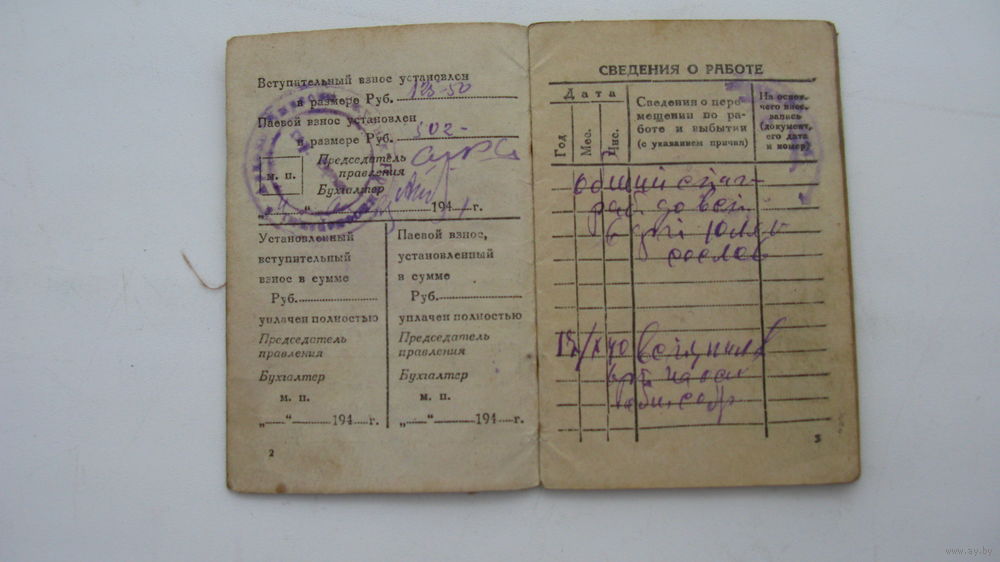 Вступительный взнос установлен
в размере Руб. 125-50
Паевой взнос установлен
в размере Руб. 502-
Председатель
правления
м. п.
Бухгалтер
194 г.
Установленный
вступительный
взнос в сумме
Руб.
уплачен полностью
Председатель
правления
Бухгалтер
м. п.
„ “ 194 г.
Паевой взнос,
установленный
в сумме
Руб.
уплачен полностью
Председатель
правления
Бухгалтер
м. п.
„ “ 194 г.
2
СВЕДЕНИЯ О РАБОТЕ
Дата
Год
Мес.
Чис.
Сведения о пере-
мещении по ра-
боте и выбытии
(с указанием причин)
На основ.
чего внес.
запись
(документ,
его дата
и номер)
Общий стаж
раб. до вст.
в
со слов
вступил в
общ. собр
3
www.ay.by